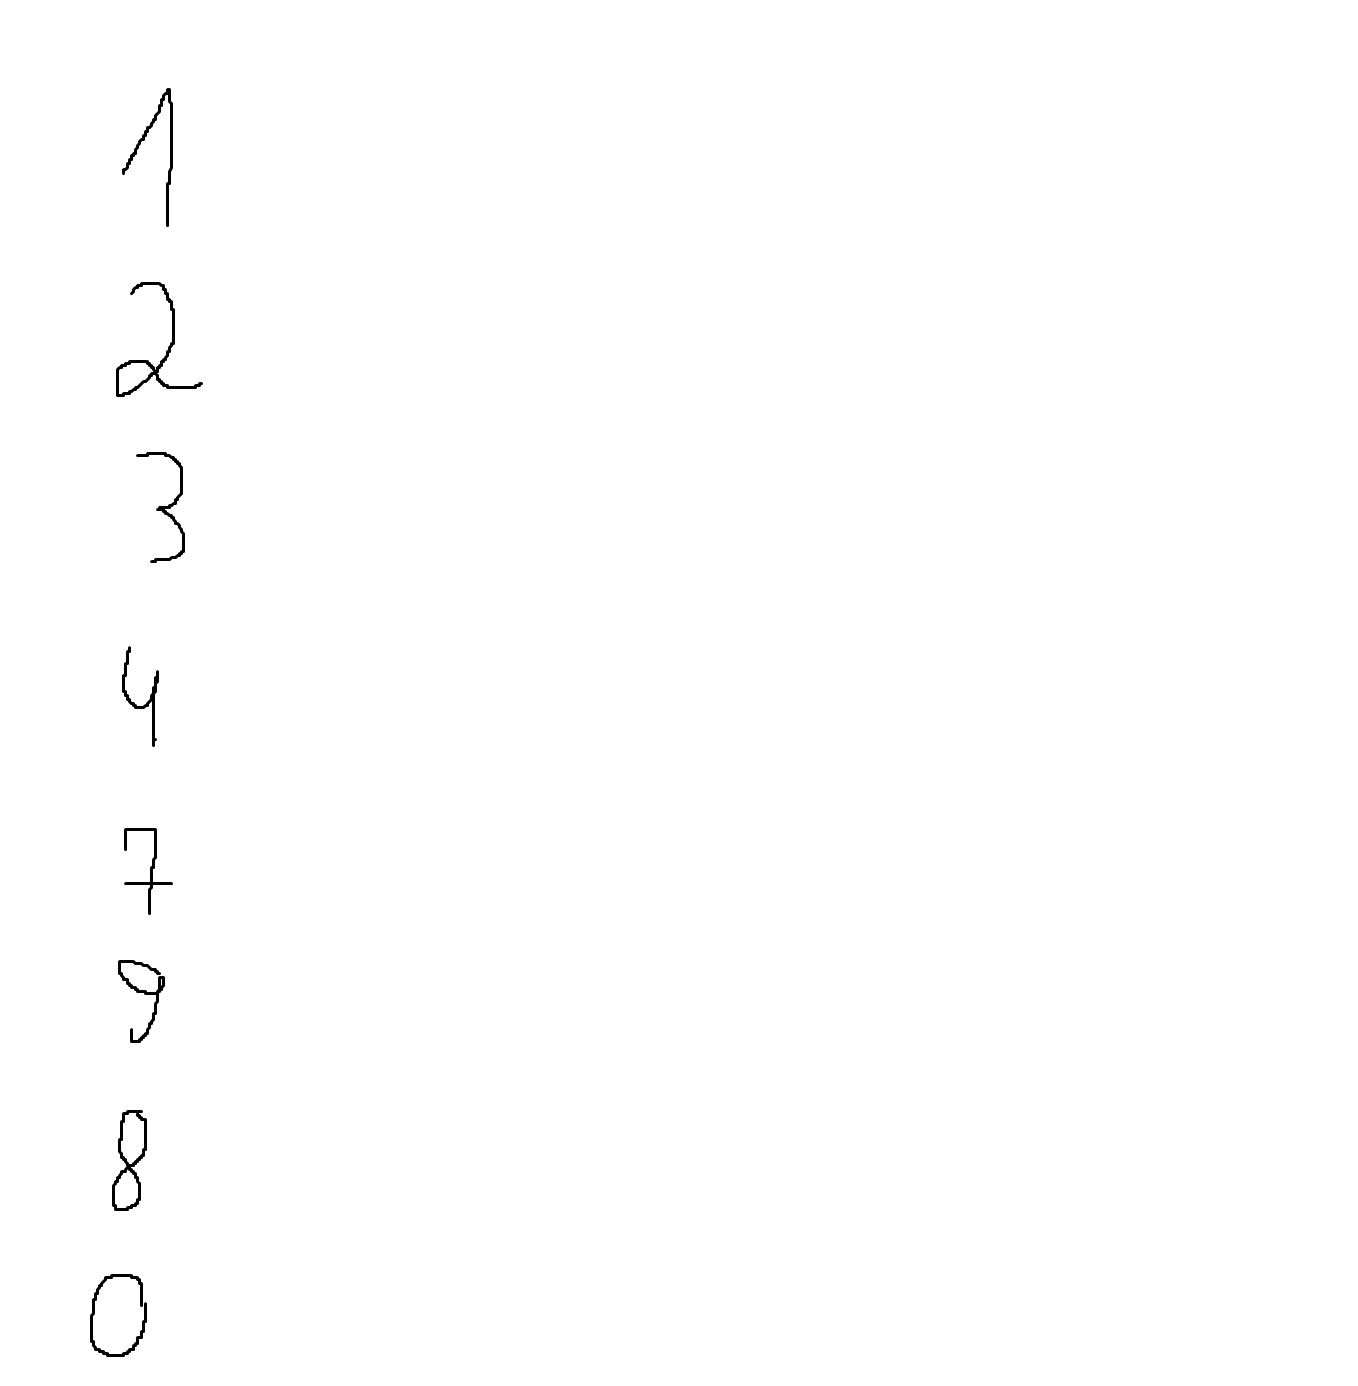 1
2
3
4
7
9
8
0